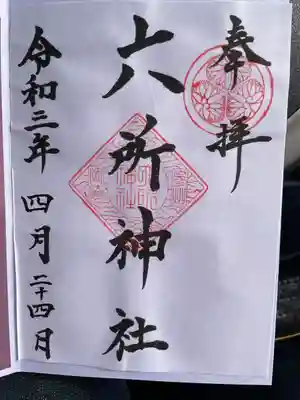 奉拝
六所神社
令和三年 四月 二十四日